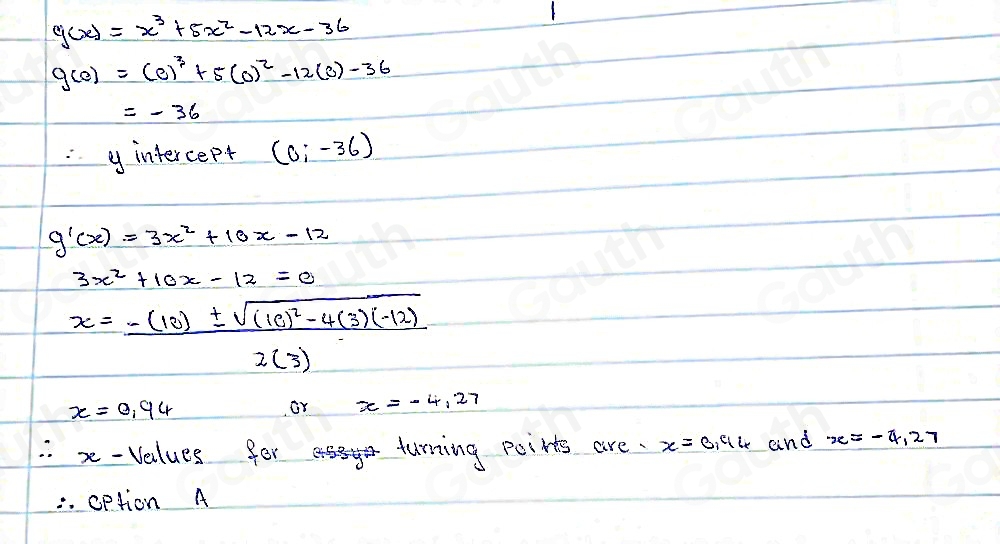 g(x) = x³ + 5x² - 12x - 36
g(0) = (0)³ + 5(0)² - 12(0) - 36
= - 36
∴ y intercept (0; -36)
g'(x) = 3x² + 10x - 12
3x² + 10x - 12 = 0
x = -(10) ± √((10)² - 4(3)(-12))
2(3)
x = 0,94 or x = -4,27
∴ x - values for turning points are x = 0,94 and x = -4,27
∴ option A